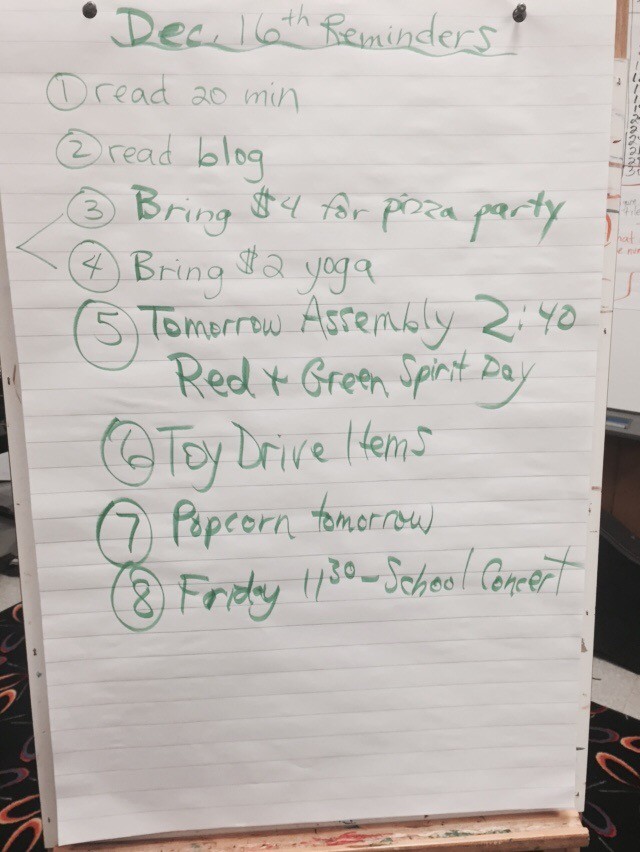 Dec. 16th Reminders
① read 20 min
② read blog
③ Bring $4 for pizza party
④ Bring $2 yoga
⑤ Tomorrow Assembly 2:40
Red + Green Spirit Day
⑥ Toy Drive Items
⑦ Popcorn tomorrow
⑧ Friday 11 30 - School Concert